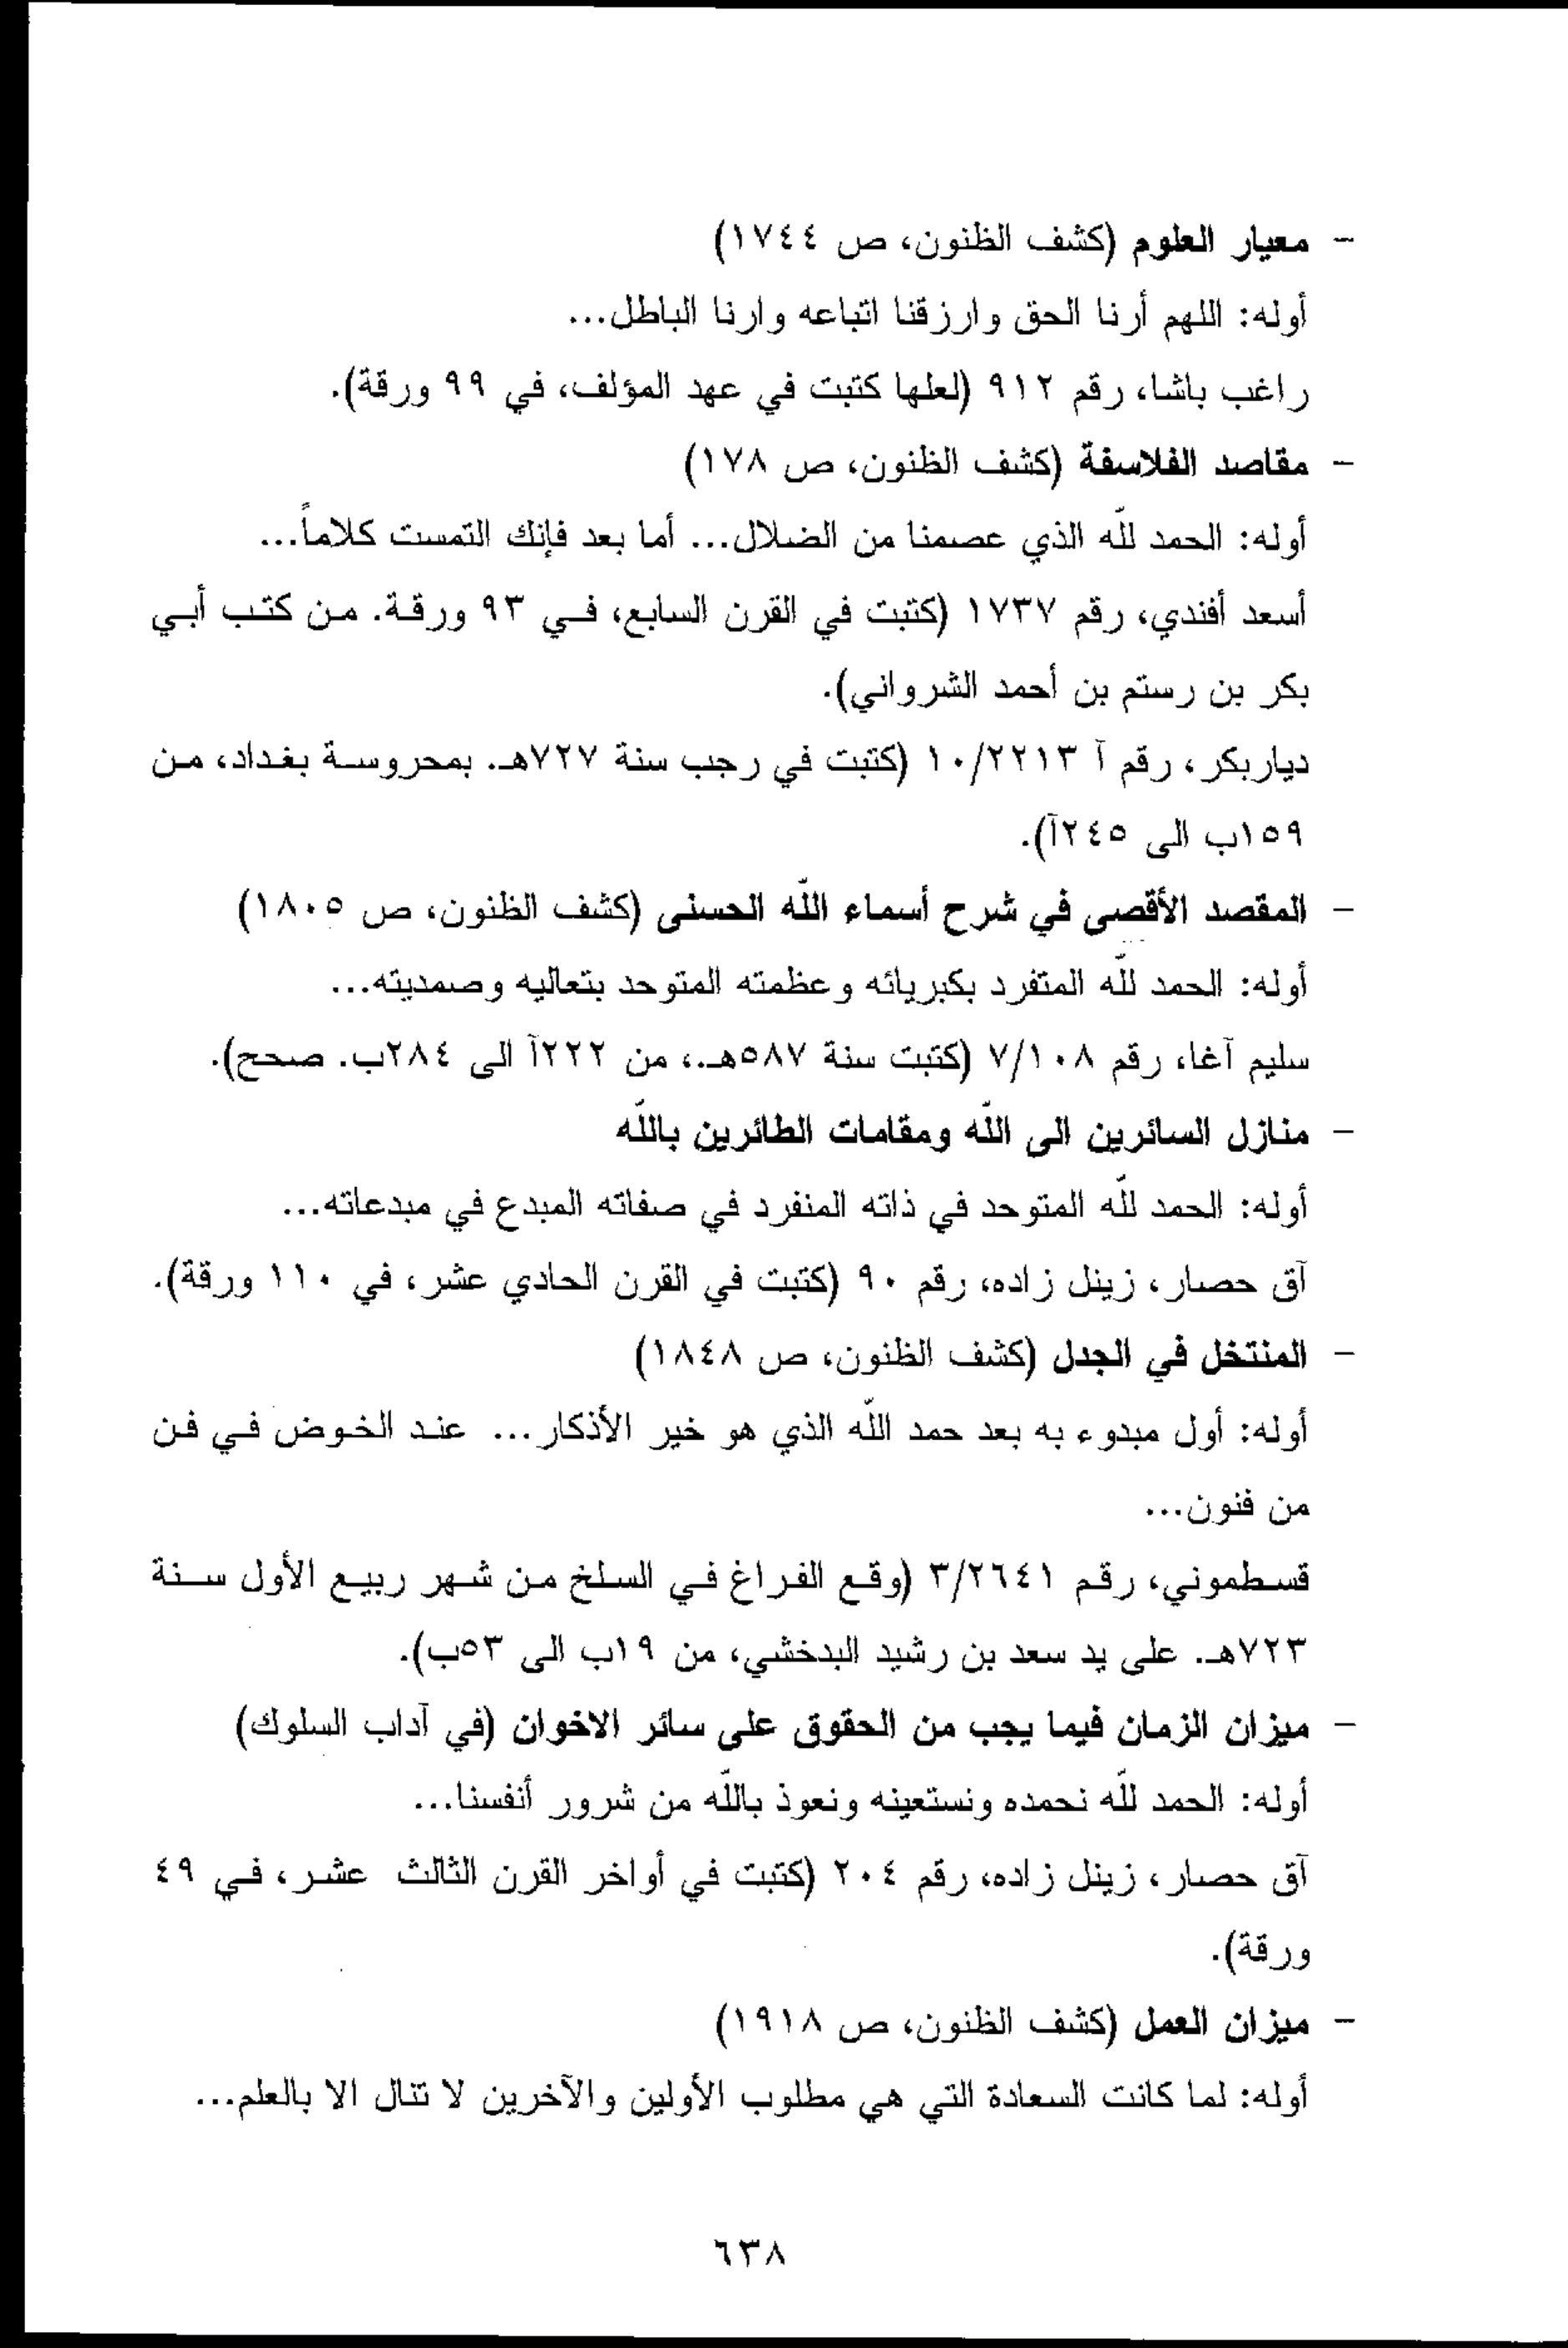 - معيار العلوم (كشف الظنون، ص ١٧٤٤)
أوله: اللهم أرنا الحق وارزقنا اتباعه وارنا الباطل...
راغب باشا، رقم ٩١٢ (لعلها كتبت في عهد المؤلف، في ٩٩ ورقة).
- مقاصد الفلاسفة (كشف الظنون، ص ١٧٨)
أوله: الحمد لله الذي عصمنا من الضلال... أما بعد فإنك التمست كلاماً...
أسعد أفندي، رقم ١٧٣٧ (كتبت في القرن السابع، في ٩٣ ورقة. من كتب أبي
بكر بن رستم بن أحمد الشرواني).
دياربكر، رقم آ ١٠/٢٢١٣ (كتبت في رجب سنة ٧٢٧هـ. بمحروسة بغداد، من
١٥٩ب الى ٢٤٥آ).
- المقصد الأقصى في شرح أسماء الله الحسنى (كشف الظنون، ص ١٨٠٥)
أوله: الحمد لله المتفرد بكبريائه وعظمته المتوحد بتعاليه وصمديته...
سليم آغا، رقم ٧/١٠٨ (كتبت سنة ٥٨٧هـ.، من ٢٢٢آ الى ٢٨٤ب. صحح).
- منازل السائرين الى الله ومقامات الطائرين بالله
أوله: الحمد لله المتوحد في ذاته المنفرد في صفاته المبدع في مبدعاته...
آق حصار، زينل زاده، رقم ٩٠ (كتبت في القرن الحادي عشر، في ١١٠ ورقة).
- المنتخل في الجدل (كشف الظنون، ص ١٨٤٨)
أوله: أول مبدوء به بعد حمد الله الذي هو خير الأذكار... عند الخوض في فن
من فنون...
قسطموني، رقم ٣/٢٦٤١ (وقع الفراغ في السلخ من شهر ربيع الأول سنة
٧٢٣هـ. على يد سعد بن رشيد البدخشي، من ١٩ب الى ٥٣ب).
- ميزان الزمان فيما يجب من الحقوق على سائر الاخوان (في آداب السلوك)
أوله: الحمد لله نحمده ونستعينه ونعوذ بالله من شرور أنفسنا...
آق حصار، زينل زاده، رقم ٢٠٤ (كتبت في أواخر القرن الثالث عشر، في ٤٩
ورقة).
- ميزان العمل (كشف الظنون، ص ١٩١٨)
أوله: لما كانت السعادة التي هي مطلوب الأولين والآخرين لا تنال الا بالعلم...
٦٣٨